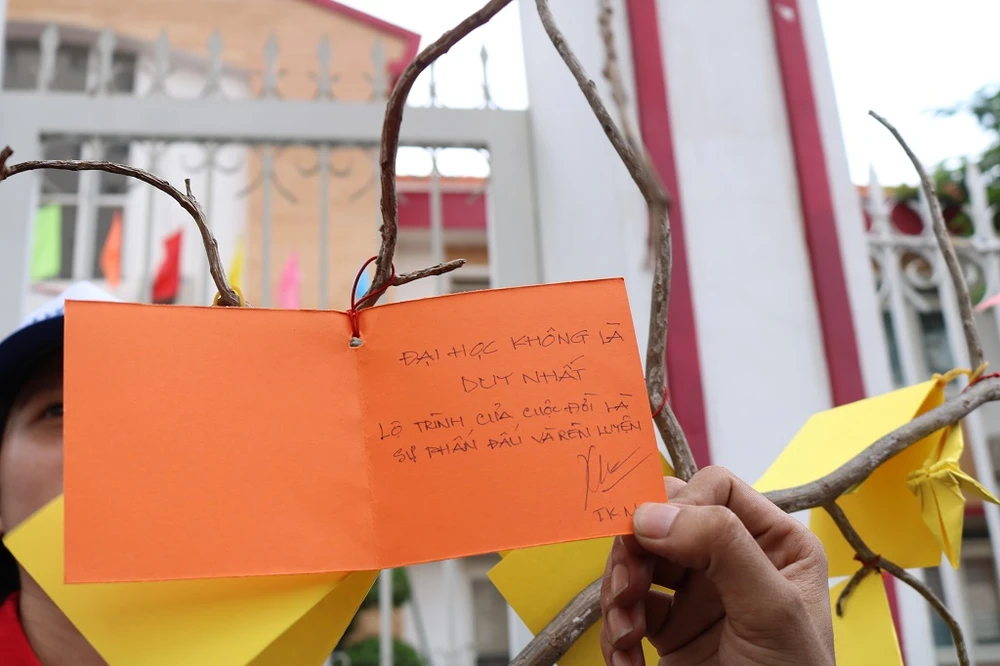 ĐẠI HỌC KHÔNG LÀ
DUY NHẤT
LỘ TRÌNH CỦA CUỘC ĐỜI LÀ
SỰ PHẤN ĐẤU VÀ RÈN LUYỆN